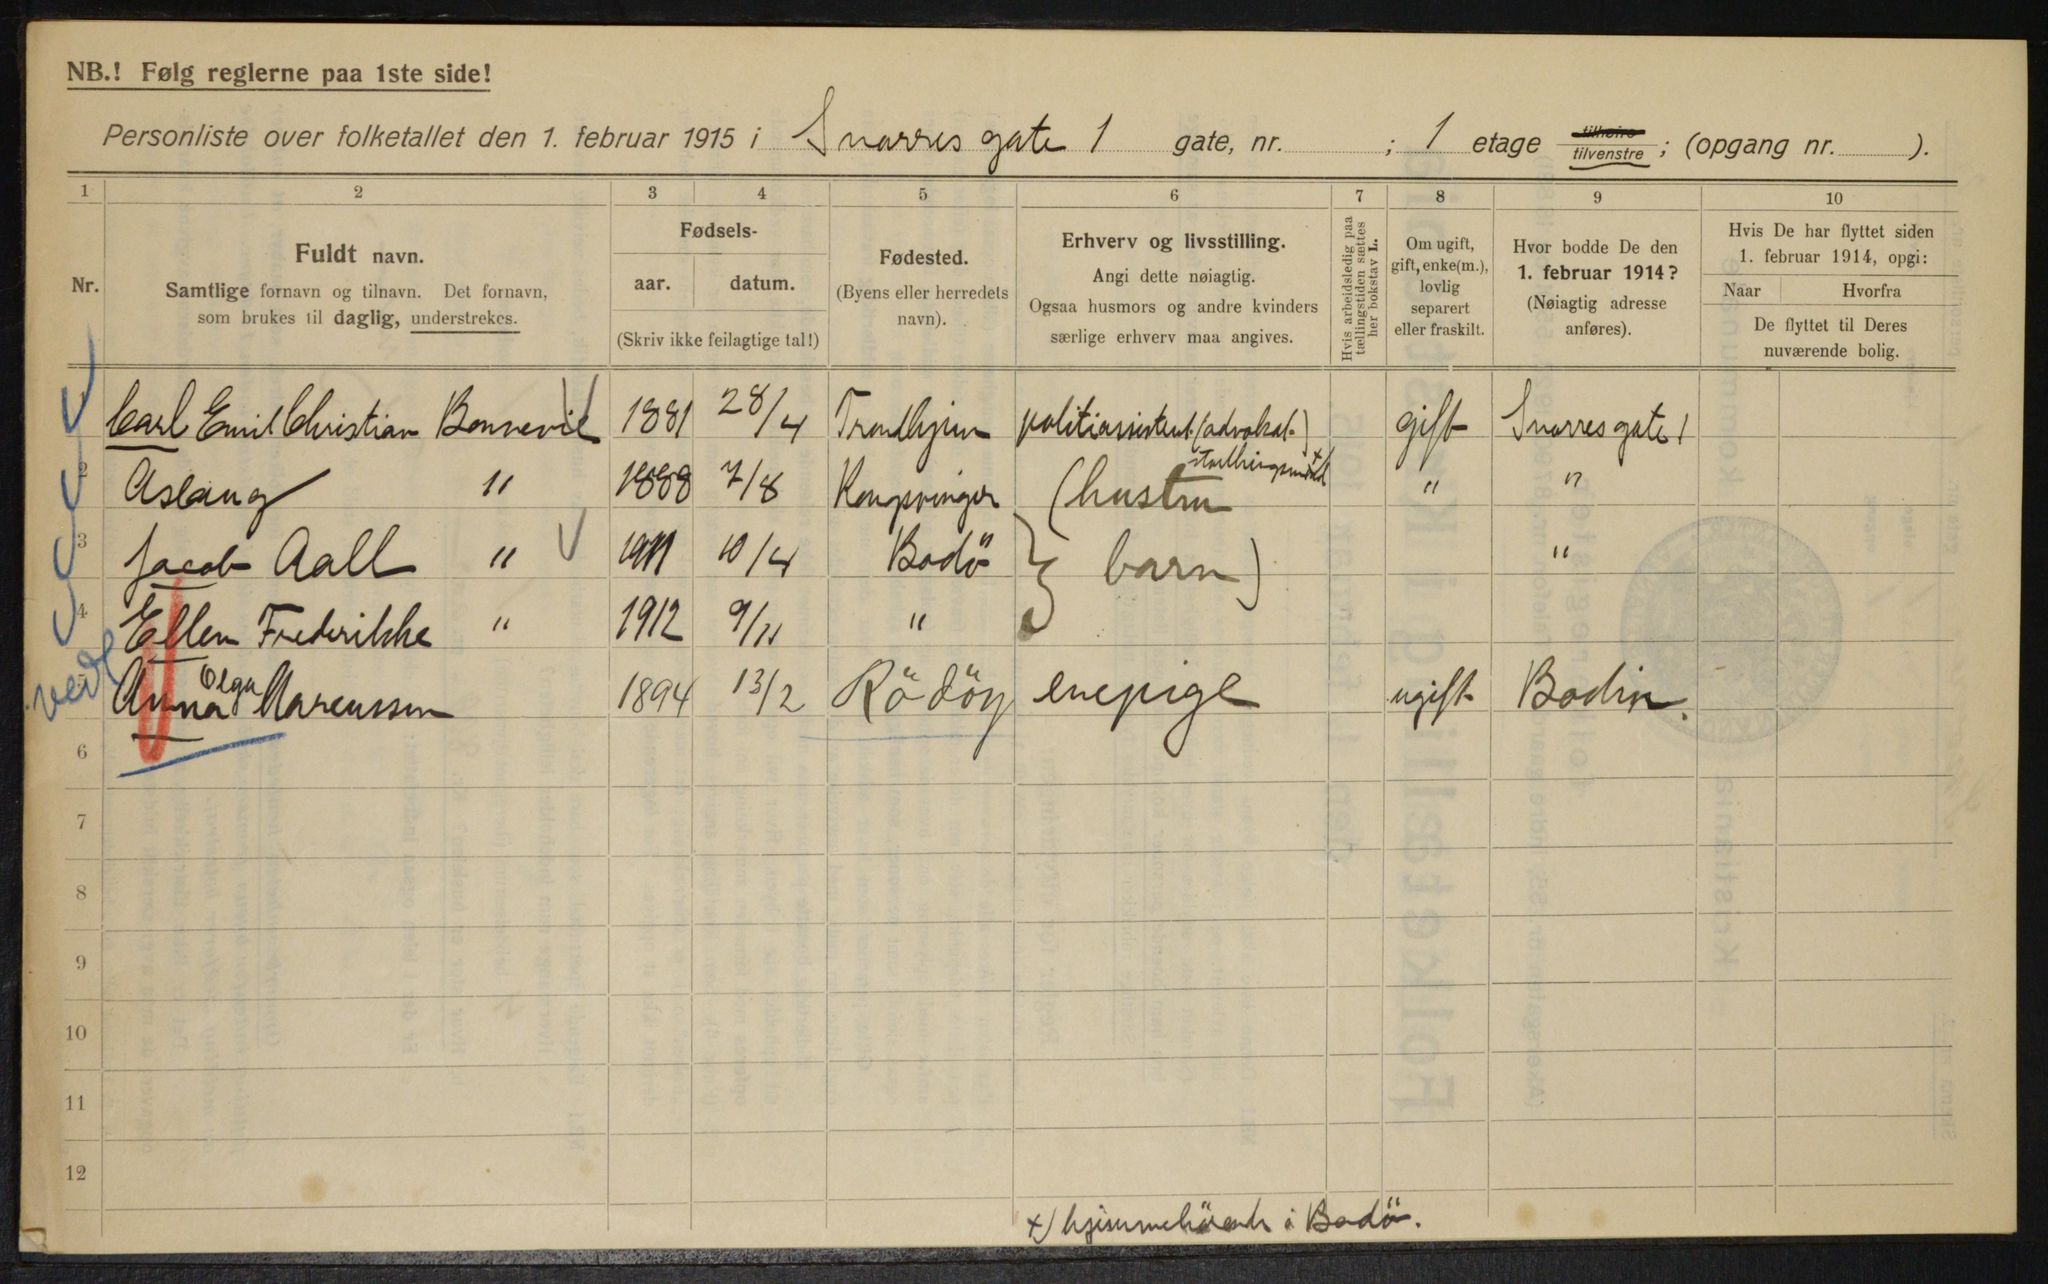 NB.! Følg reglerne paa 1ste side!
Personliste over folketallet den 1. februar 1915 i Snorres gate 1 gate, nr. ; 1 etage tilhøire tilvenstre ; (opgang nr. ).
1 2 3 4 5 6 7 8 9 10
Nr.
Fuldt navn.
Samtlige fornavn og tilnavn. Det fornavn,
som brukes til daglig, understrekes.
Fødsels-
aar. datum.
(Skriv ikke feilagtige tal!)
Fødested.
(Byens eller herredets
navn).
Erhverv og livsstilling.
Angi dette nøiagtig.
Ogsaa husmors og andre kvinders
særlige erhverv maa angives.
Hvis arbeidsledig paa
tællingstiden sættes
her bokstav L.
Om ugift,
gift, enke(m.),
lovlig
separert
eller fraskilt.
Hvor bodde De den
1. februar 1914?
(Nøiagtig adresse
anføres).
Hvis De har flyttet siden
1. februar 1914, opgi:
Naar Hvorfra
De flyttet til Deres
nuværende bolig.
Carl Emil Christian Bonnevie 1881 28/4 Trondhjem politiassistent (advokat) gift Snorres gate 1
2 Aslaug " 1888 7/8 Kongsvinger (hustru " "
3 Jacob Aall " 1911 10/4 Bodö } barn) "
4 Ellen Frederikke " 1912 9/11 "
Anna Olga Marcussen 1894 13/2 Rödöy enepige ugift Bodin.
6
7
8
9
10
11
12
+) hjemmehörende i Bodö.